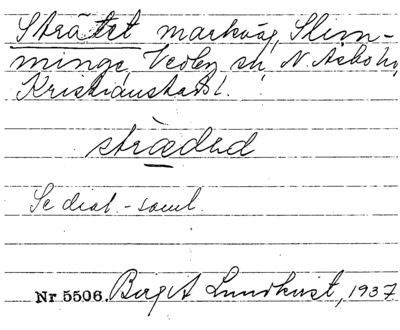 Strätet markväg, Slim-
minge, Vedby sn, N. Åsbo hd,
Kristianstads l.
stræded
Se dial.-saml.
Nr 5506. Birgit Lundkvist, 1937